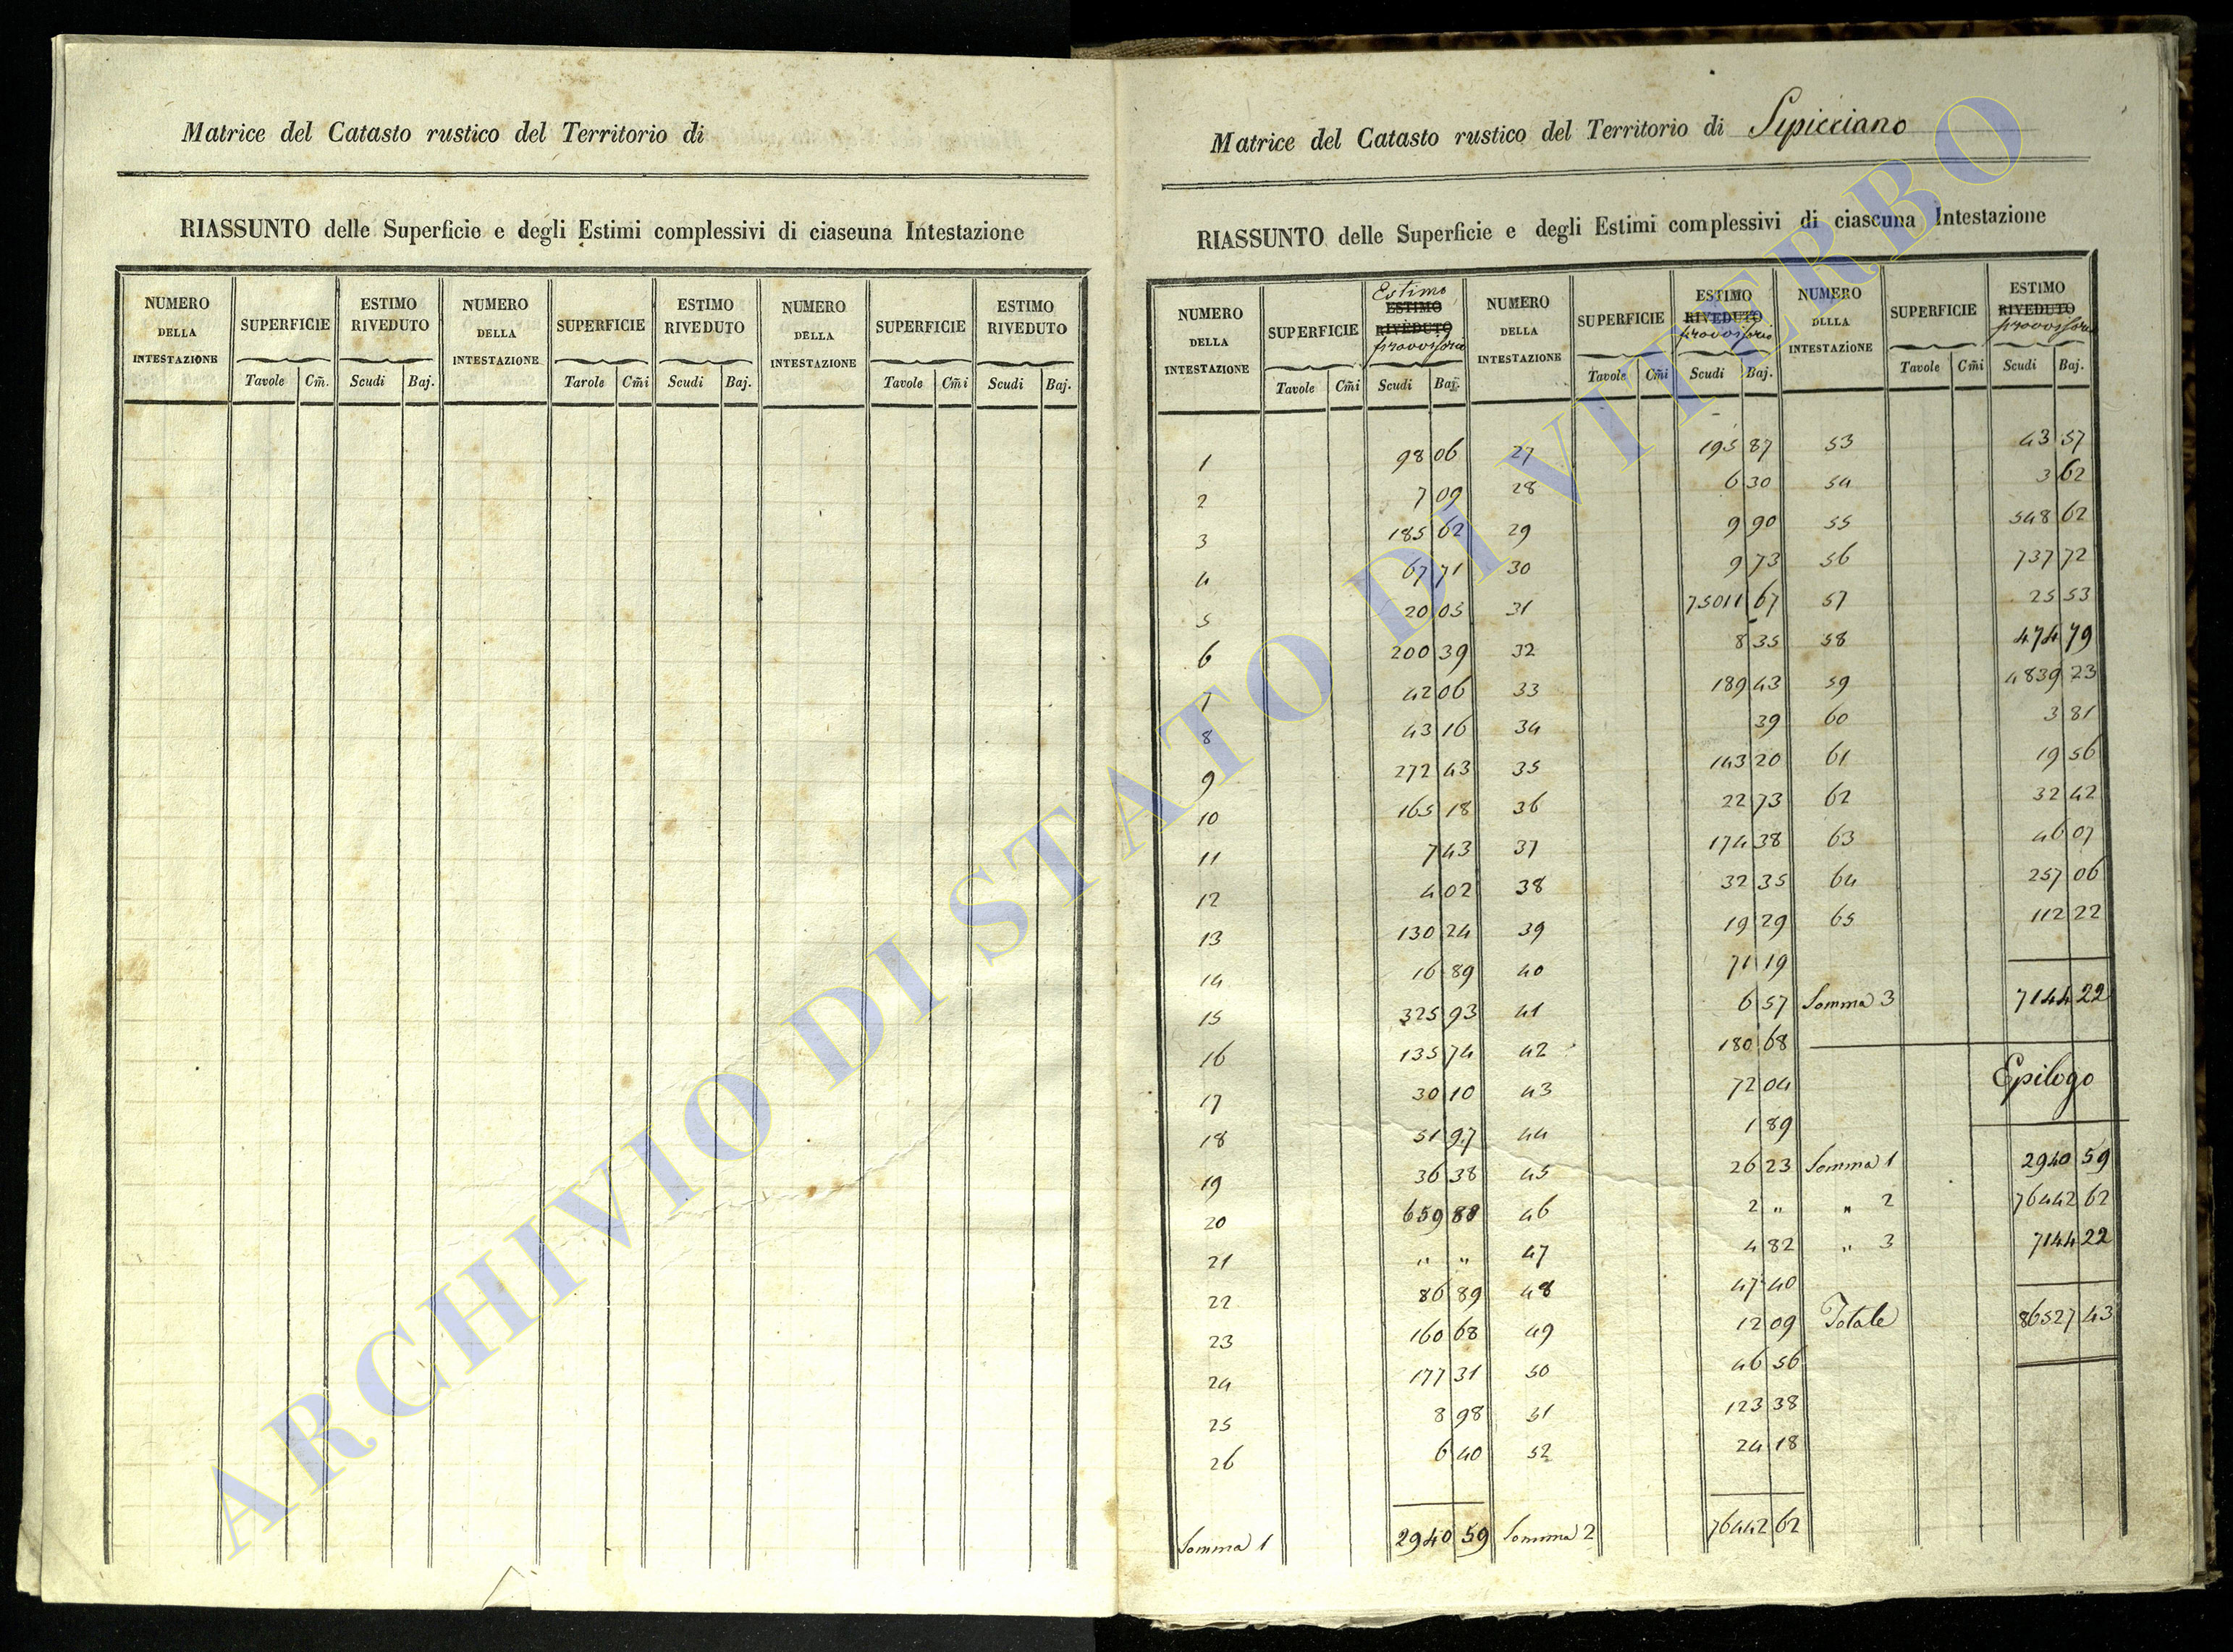 Matrice del Catasto rustico del Territorio di
RIASSUNTO delle Superficie e degli Estimi complessivi di ciascuna Intestazione
NUMERO DELLA INTESTAZIONE SUPERFICIE ESTIMO RIVEDUTO NUMERO DELLA INTESTAZIONE SUPERFICIE ESTIMO RIVEDUTO NUMERO DELLA INTESTAZIONE SUPERFICIE ESTIMO RIVEDUTO
Tavole Cm̃. Scudi Baj. Tavole Cm̃i Scudi Baj. Tavole Cm̃i Scudi Baj.
Matrice del Catasto rustico del Territorio di Sipicciano
RIASSUNTO delle Superficie e degli Estimi complessivi di ciascuna Intestazione
NUMERO DELLA INTESTAZIONE SUPERFICIE Estimo ESTIMO RIVEDUTO provvisorio NUMERO DELLA INTESTAZIONE SUPERFICIE ESTIMO RIVEDUTO provvisorio NUMERO DLLLA INTESTAZIONE SUPERFICIE ESTIMO RIVEDUTO provvisorio
Tavole Cm̃i Scudi Baj. Tavole Cm̃i Scudi Baj. Tavole Cm̃i Scudi Baj.
1 98 06 27 195 87 53 43 57
2 7 09 28 6 30 54 3 62
3 185 62 29 9 90 55 548 62
4 67 71 30 9 73 56 737 72
5 20 05 31 75011 67 57 25 53
6 200 39 32 8 35 58 474 79
7 42 06 33 189 43 59 4839 23
8 43 16 34 39 60 3 81
9 272 43 35 143 20 61 19 56
10 165 18 36 22 73 62 32 42
11 7 43 37 174 38 63 46 07
12 4 02 38 32 35 64 257 06
13 130 24 39 19 29 65 112 22
14 16 89 40 71 19
15 325 93 41 6 57 Somma 3 7144 22
16 135 74 42 180 68
17 30 10 43 72 04 Epilogo
18 51 97 44 1 89
19 36 38 45 26 23 Somma 1 2940 59
20 659 88 46 2 " " 2 76442 62
21 " " 47 4 82 " 3 7144 22
22 86 89 48 47 40
23 160 68 49 12 09 Totale 86527 43
24 177 31 50 46 56
25 8 98 51 123 38
26 6 40 52 24 18
Somma 1 2940 59 Somma 2 76442 62
ARCHIVIO DI STATO DI VITERBO